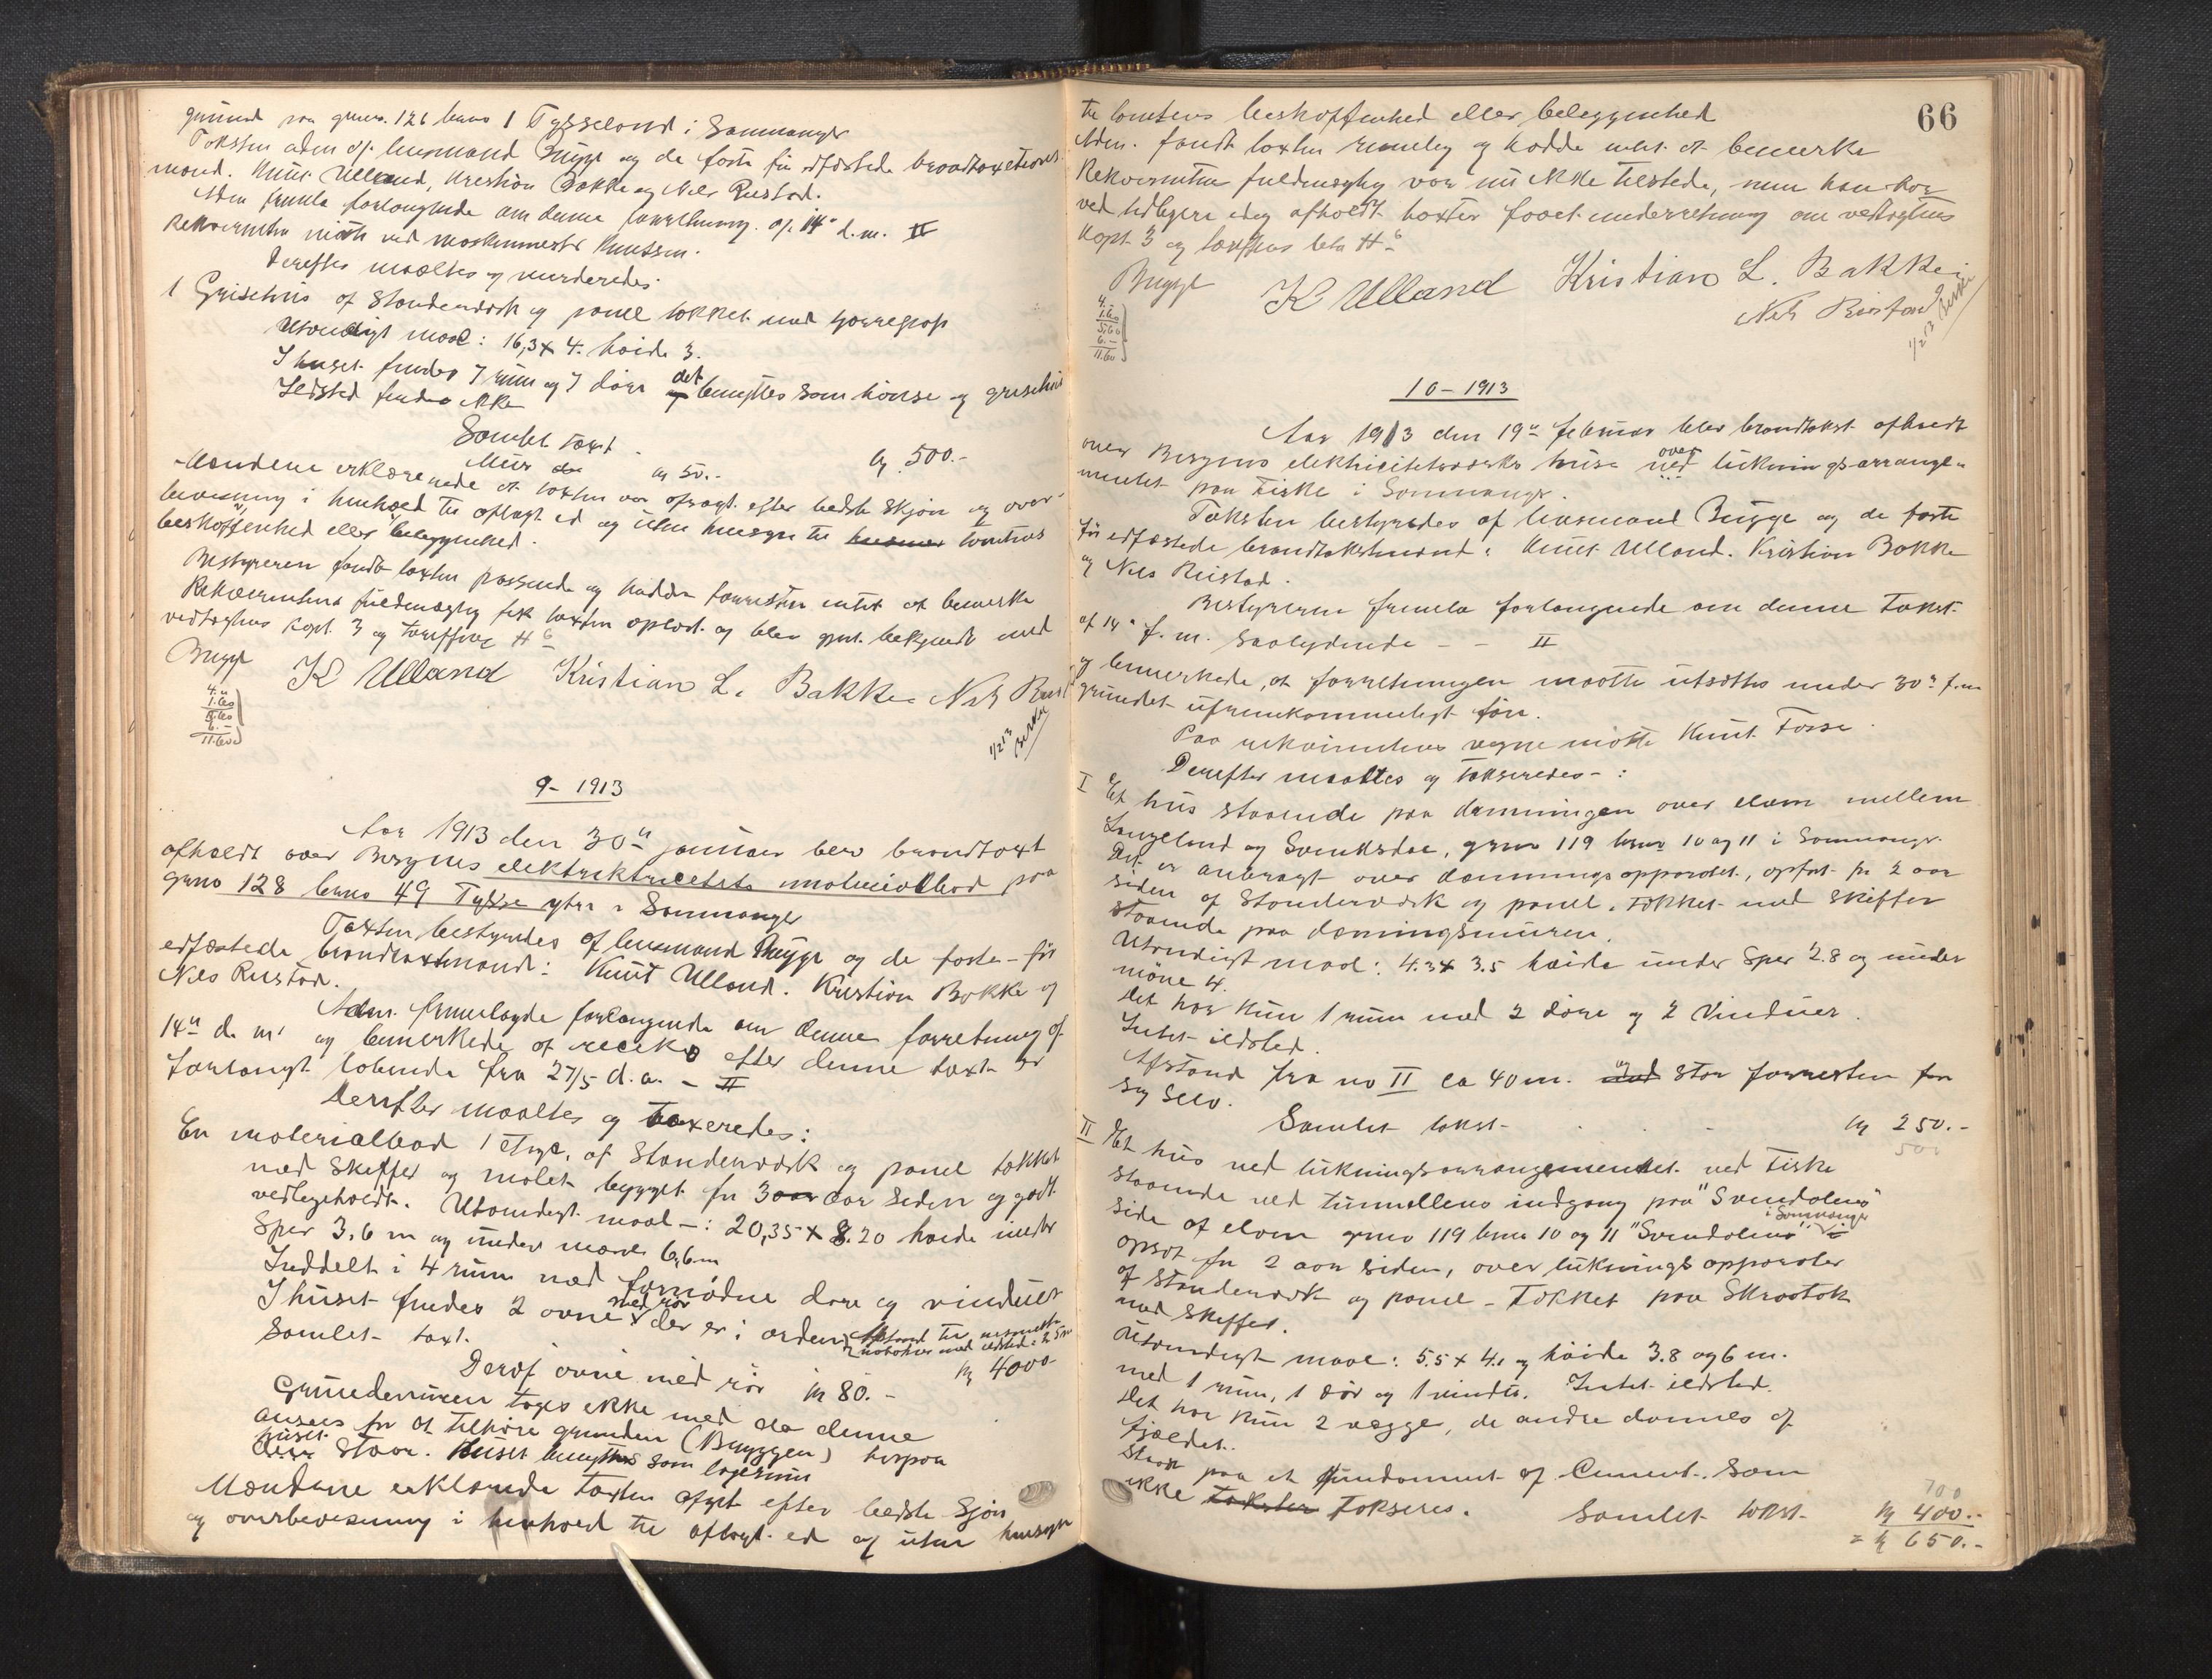 grund paa gruno. 126 bruno 1 Tysseland i Samnanger
Taksten adm. af lensmand Bugge og de faste før edfæstede brandtaxtations-
mænd. Knut Ulland, Kristian Bakke og Nils Rustad.
Adm. fremla forlangende om denne forretning af 14de d.m. II
Rekvirenten mötte ved maskinmester Knutsen.
Derefter maaltes og vurderedes:
1 Grisehus af Standerværk og panel tækket med
Utvendigt maal: 16,3 x 4. høide 3.
I huset findes 7 rum og 7 döre det benyttes som hönse og grisehus
Ildsted findes ikke
Samlet taxt. Kr. 500.-
Mur kr 50.-
Mændene erklærede at taxten var afsagt efter bedste skjøn og over-
bevisning i henhold til aflagt ed og uten hensyn til tomtens
beskaffenhed eller beleggenhed.
Bestyreren fandt taxten passende og hadde forresten intet at bemerke
Rekvirentens fuldmægtig fik taxten oplæst og blev gjort bekjendt med
vedtægtens kapt. 3 og tariffens H 6
Bugge K Ulland Kristian L. Bakke Nils Rust
4.-
1.60
5.60
6.-
11.60
1/2 13
9 - 1913
Aar 1913 den 30te januar blev brandtaxt
afholdt over Bergens elektricitets materialbod paa
gruno 128 bruno 49 Tysse ytre i Samnanger
Taxten bestyredes af lensmand Bugge og de faste - før
edfæstede brandtaxtmænd: Knut Ulland. Kristian Bakke og
Nils Rustad.
Adm. fremlagde forlangende om denne forretning af
14de d. m. og bemerkede at efter denne taxt er
forlangt löbende fra 27/5 d.a. - II
Derefter maaltes og taxeredes:
En materialbod 1 etage, af Standerværk og panel tækket
med Skiffer og malet bygget for 3 aar siden og godt
vedligeholdt. Utvendigt maal -: 20,35 x 8.20 høide under
Sper 3,6 m og under møne 6,6 m
Inddelt i 4 rum med fornödne döre og vinduer
I huset findes 2 ovne med rör der er i orden. Afstand til nærmeste
nabohus med ildsted:
Samlet taxt. kr 4000
Deraf ovne med rör kr 80.-
Grundmuren tages ikke med da denne
ansees for at tilhöre grunden (Bryggen) hvorpaa
huset staar. Huset benyttes som lagerrum
Mændene erklærede taxten afgit efter bedste Skjön
og overbevisning i henhold til aflagt ed og uten hensyn
66
til tomtens beskaffenhed eller beleggenhed
Adm. fandt taxten rimelig og hadde intet at bemerke
Rekvirentens fuldmægtig var nu ikke tilstede, men han har
ved tidligere idag afholdt taxter faaet underretning om vedtægtens
Kapt 3 og tariffens H 6
Bugge K Ulland Kristian L. Bakke
Nils Rustad
4.-
1.60
5.60
6.-
11.60
1/2 13
10 - 1913
Aar 1913 den 19de februar blev brandtakst afholdt
over Bergens elektricitetsværks huse over lukningsarrange-
mentet paa Fiske i Samnanger.
Taksten bestyredes af lensmand Bugge og de faste
før edfæstede brandtakstmænd: Knut Ulland. Kristian Bakke
og Nils Reistad.
Bestyreren fremla forlangende om denne Takst
af 14de f.m. saalydende - - II
og bemerkede, at forretningen maatte utsættes under 30te f.m
grundet ufremkommeligt före.
Paa rekvirentens vegne mötte Knut Fosse.
Derefter maaltes og takseredes -:
I Et hus staaende paa damningen over elven mellem
Langeland og Svenksdal, gruno 119 bruno 10 og 11 i Samnanger.
Det er anbragt over damningsapparatet, opført for 2 aar
siden af Standerværk og panel. tækket med Skiffer
staaende paa damningsmuren.
Utvendigt maal: 4.3 x 3.5 høide under Sper 2.8 og under
möne 4.
Det har kun 1 rum med 2 döre og 2 Vinduer.
Intet ildsted.
Afstand fra no II ca 40 m. Staar forresten for
sig Selv.
Samlet takst. kr 250.-
500
II Et hus ved lukningsarrangementet ved Fiske
staaende ved tunnellens indgang paa "Svendalens"
side af elven gruno 119 bruno 10 og 11 "Svendalens" i Samnanger
opsat for 2 aar siden, over lukningsapparater
af Standerværk og panel - Tækket paa Skraatak
med Skiffer.
Utvendigt maal: 5.5 x 4.1 og høide 3.8 og 6 m.
med 1 rum, 1 dör og 1 vindu. Intet ildsted.
Det har kun 2 vægge, de andre dannes af
fjældet.
Staar paa et fundament af Cement. Som
ikke Takseres. Samlet takst. kr 400.-
700
= kr 650.-